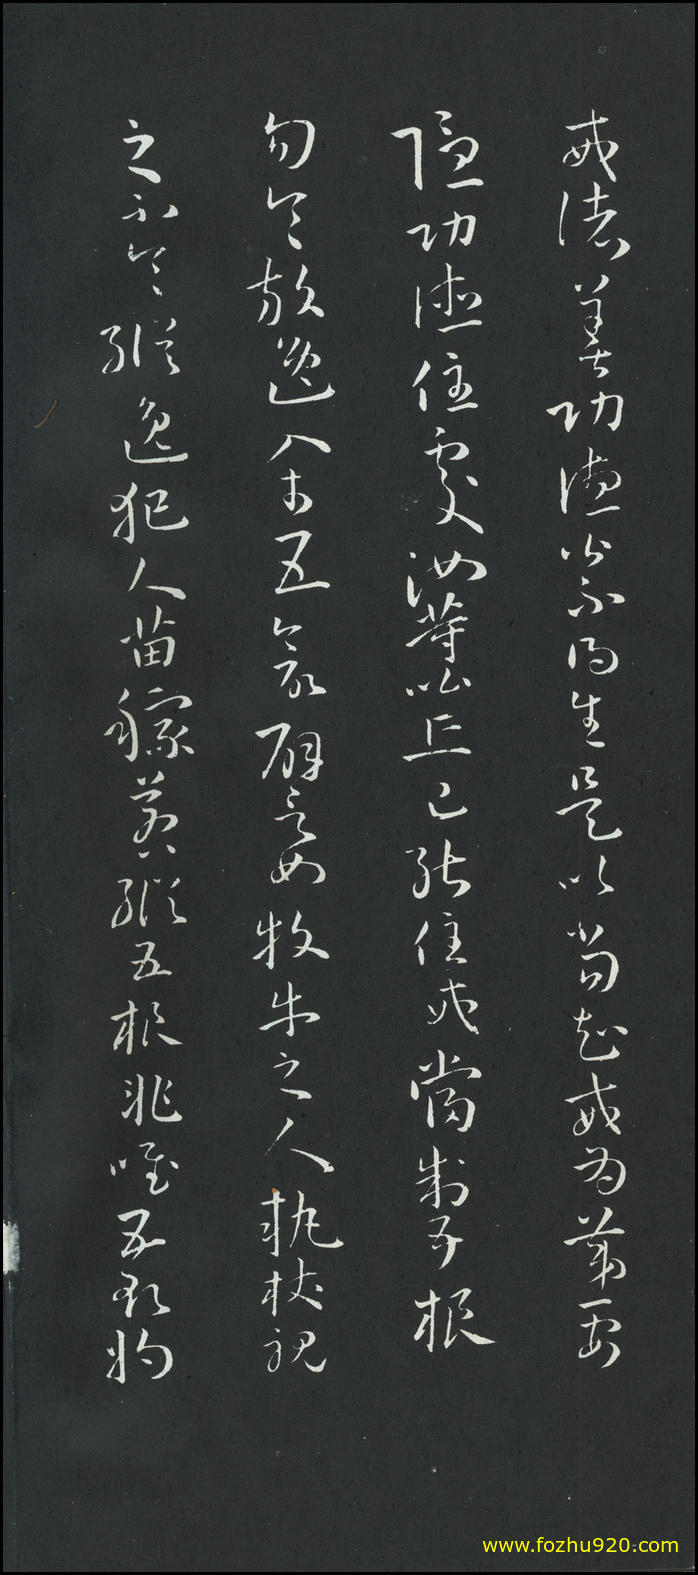 戒诸善功德皆不得生是以當知戒為第一安
隱功德住處汝等比丘已能住戒當制五根
勿令放逸入於五欲譬如牧牛之人執杖視
之不令縱逸犯人苗稼若縱五根非唯五欲將
www.fozhu920.com